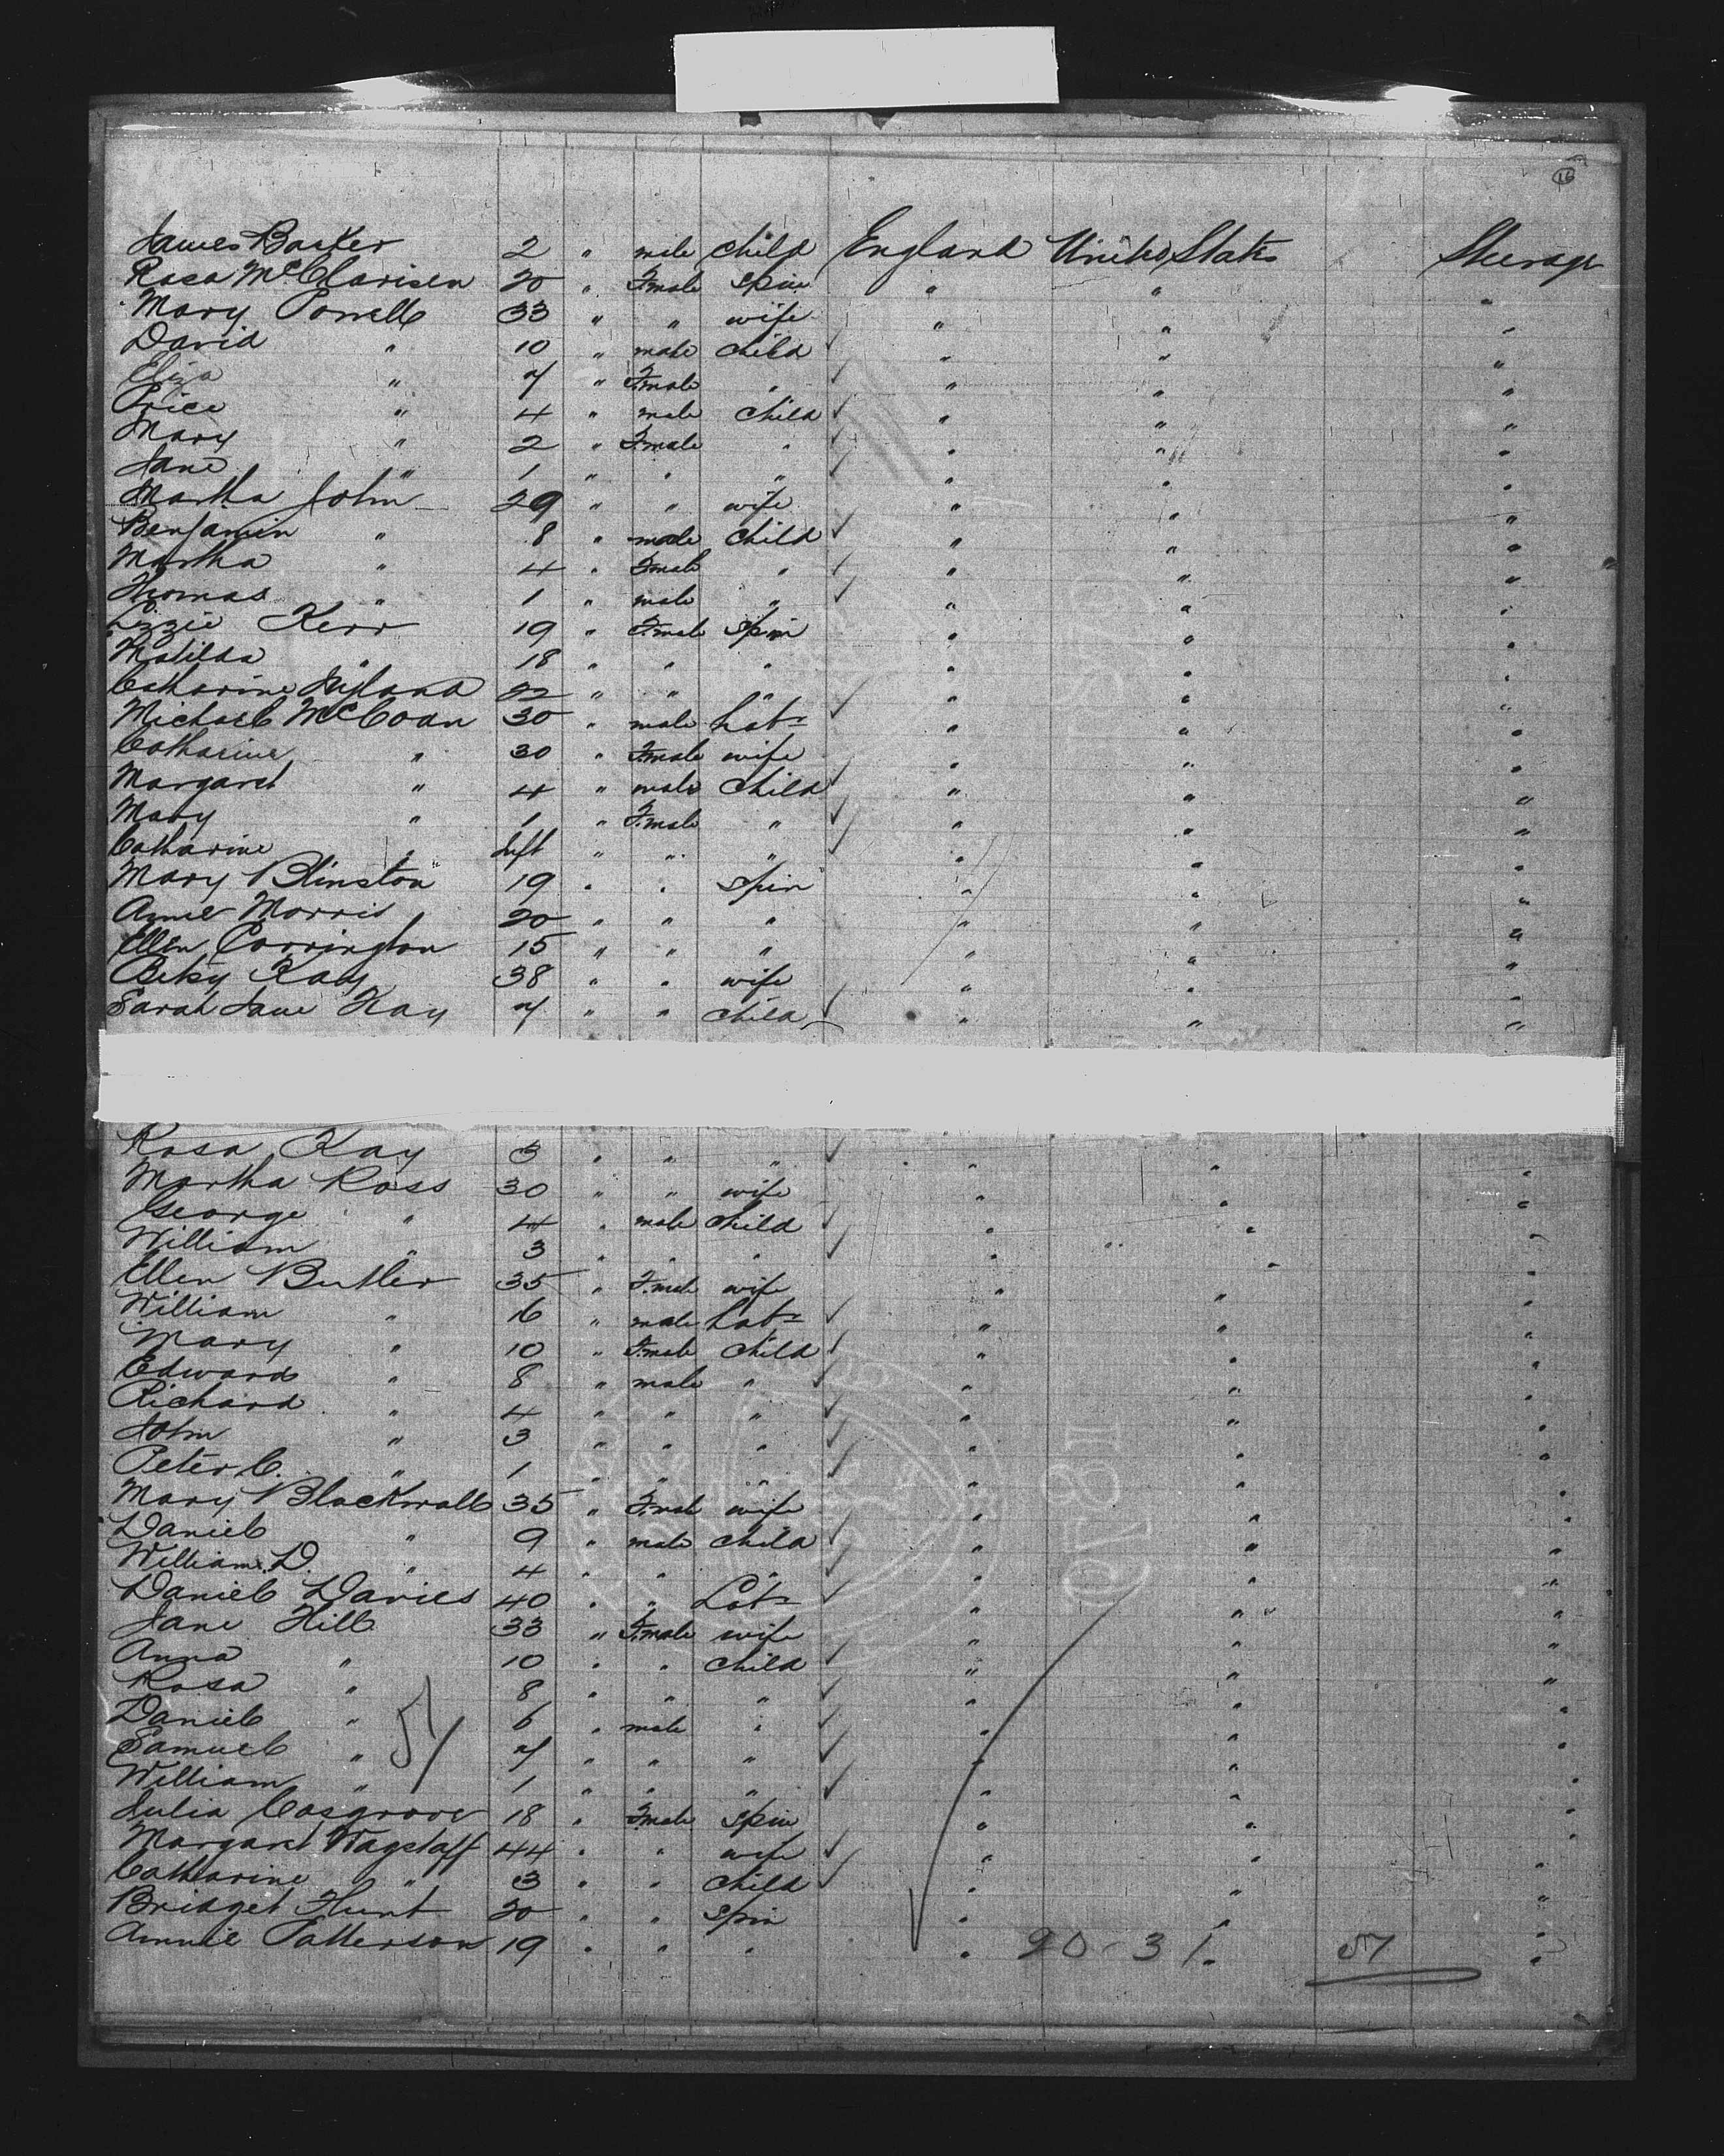 16
James Basker 2 " male child England United States Steerage
Rosa McClarisen 20 " Female Spin " " "
Mary Powell 33 " " wife " " "
David " 10 " male child " " "
Eliza " 7 " Female " " " "
Price " 4 " male child " " "
Mary " 2 " Female " " " "
Jane " 1 " " " " " "
Martha John 29 " " wife " " "
Benjamin " 8 " male child " " "
Martha " 4 " Female " " " "
Thomas " 1 " male " " " "
Lizzie Kerr 19 " Female Spin " " "
Matilda " 18 " " " " " "
Catharine 22 " " " " " "
Michael McCoan 30 " male Labr " " "
Catharine " 30 " Female wife " " "
Margaret " 4 " male child " " "
Mary " 1 " Female " " " "
Catharine " Inft " " " " " "
Mary Blinston 19 " " Spin " " "
Annie Morris 20 " " " " " "
Ellen Corrington 15 " " " " " "
Betsy Kay 38 " " wife " " "
Sarah Jane Kay 7 " " child " " "
Rosa Kay 3 " " " " " "
Martha Ross 30 " " wife " " "
George " 4 " male child " " "
William " 3 " " " " " "
Ellen Butler 35 " Female wife " " "
William " 16 " male Labr " " "
Mary " 10 " Female child " " "
Edward " 8 " male " " " "
Richard " 4 " " " " " "
John " 3 " " " " " "
Peter C. " 1 " " " " " "
Mary Blackwall 35 " Female wife " " "
Daniel " 9 " male child " " "
William D. " 4 " " " " " "
Daniel Davies 40 " " Labr " " "
Jane Hill 33 " Female wife " " "
Anna " 10 " " child " " "
Rosa " 8 " " " " " "
Daniel " 6 " male " " " "
Samuel " 7 " " " " " "
William " 1 " " " " " "
51
Julia Cosgrove 18 " Female Spin " " "
Margaret Wagstaff 44 " " wife " " "
Catharine " 3 " " child " " "
Bridget Hunt 20 " " Spin " " "
Annie Patterson 19 " " " " 20-31. 51 "